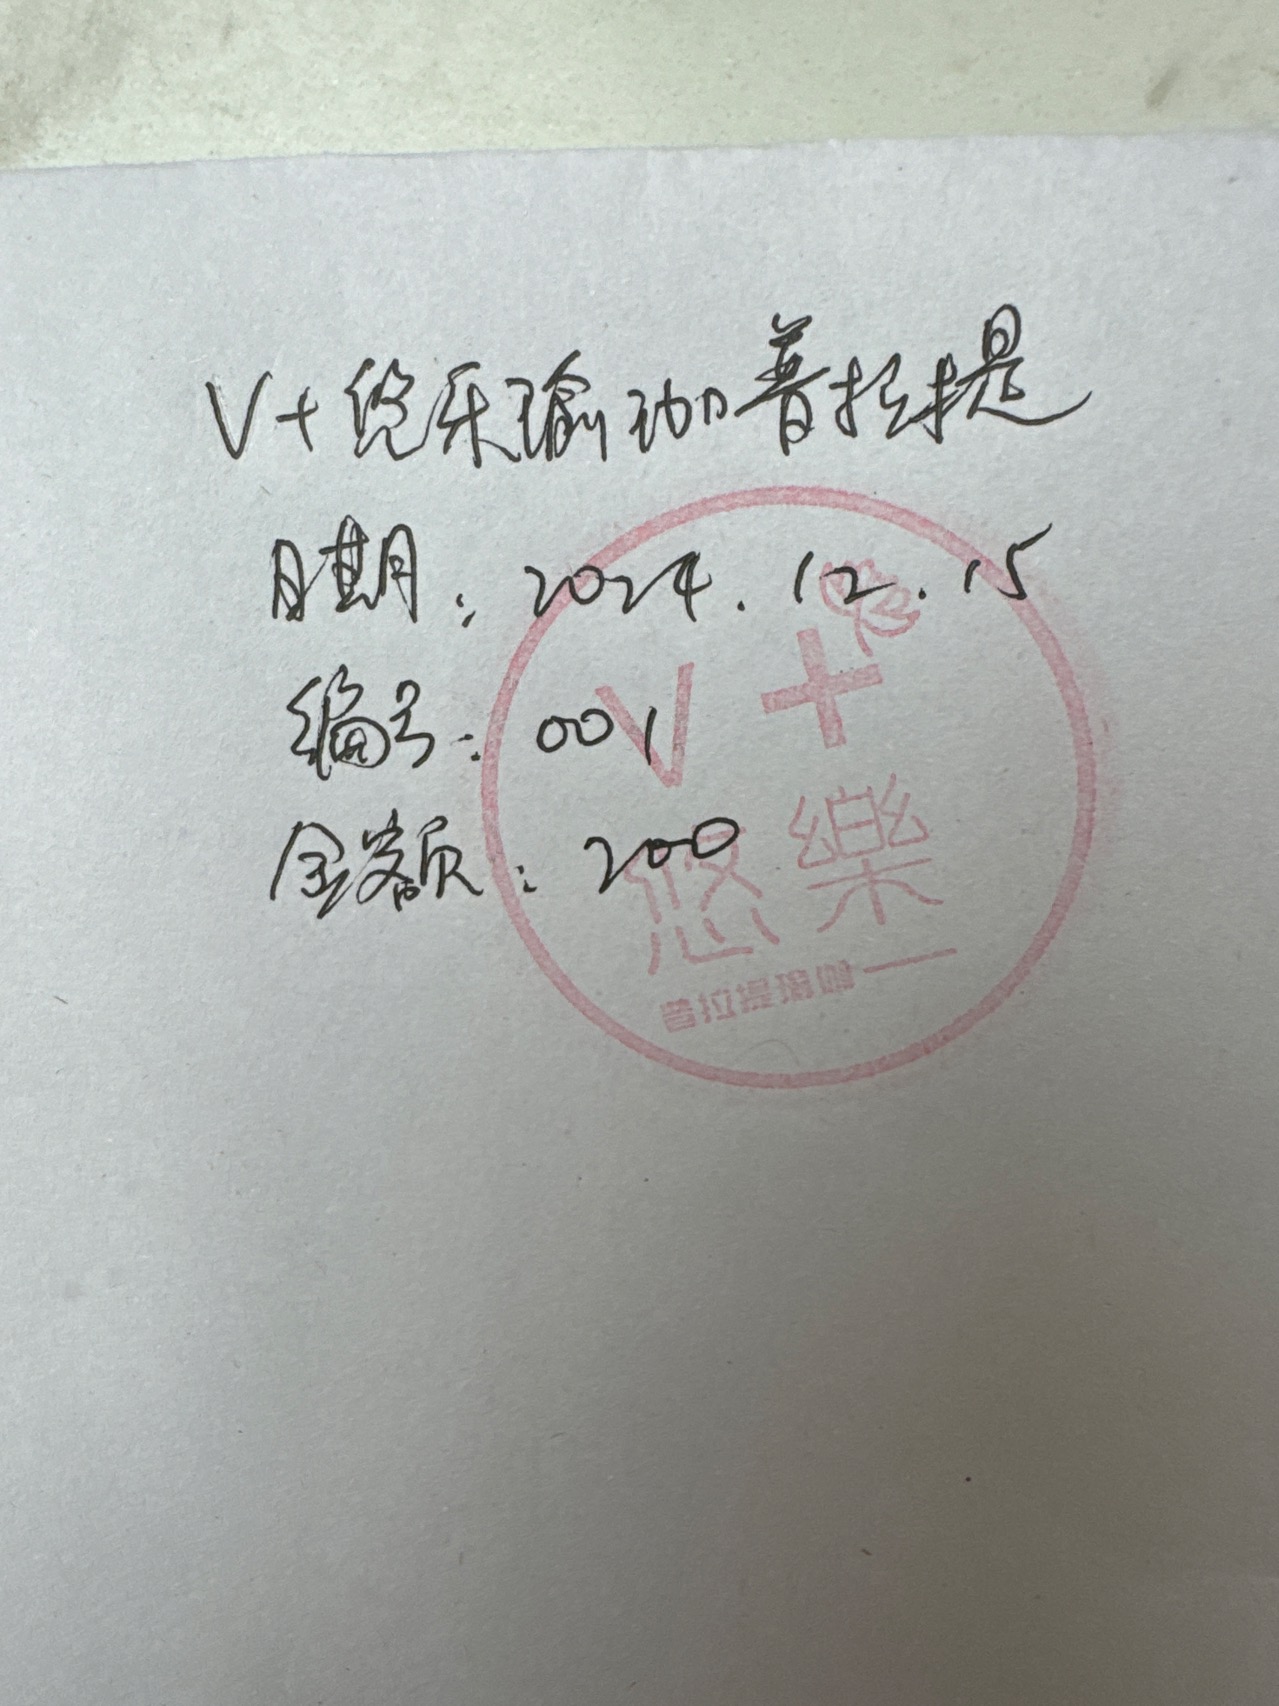 V+悠乐瑜珈普拉提
日期：2024.12.15
编号：001
金额：200
V+
悠樂
普拉提瑜伽